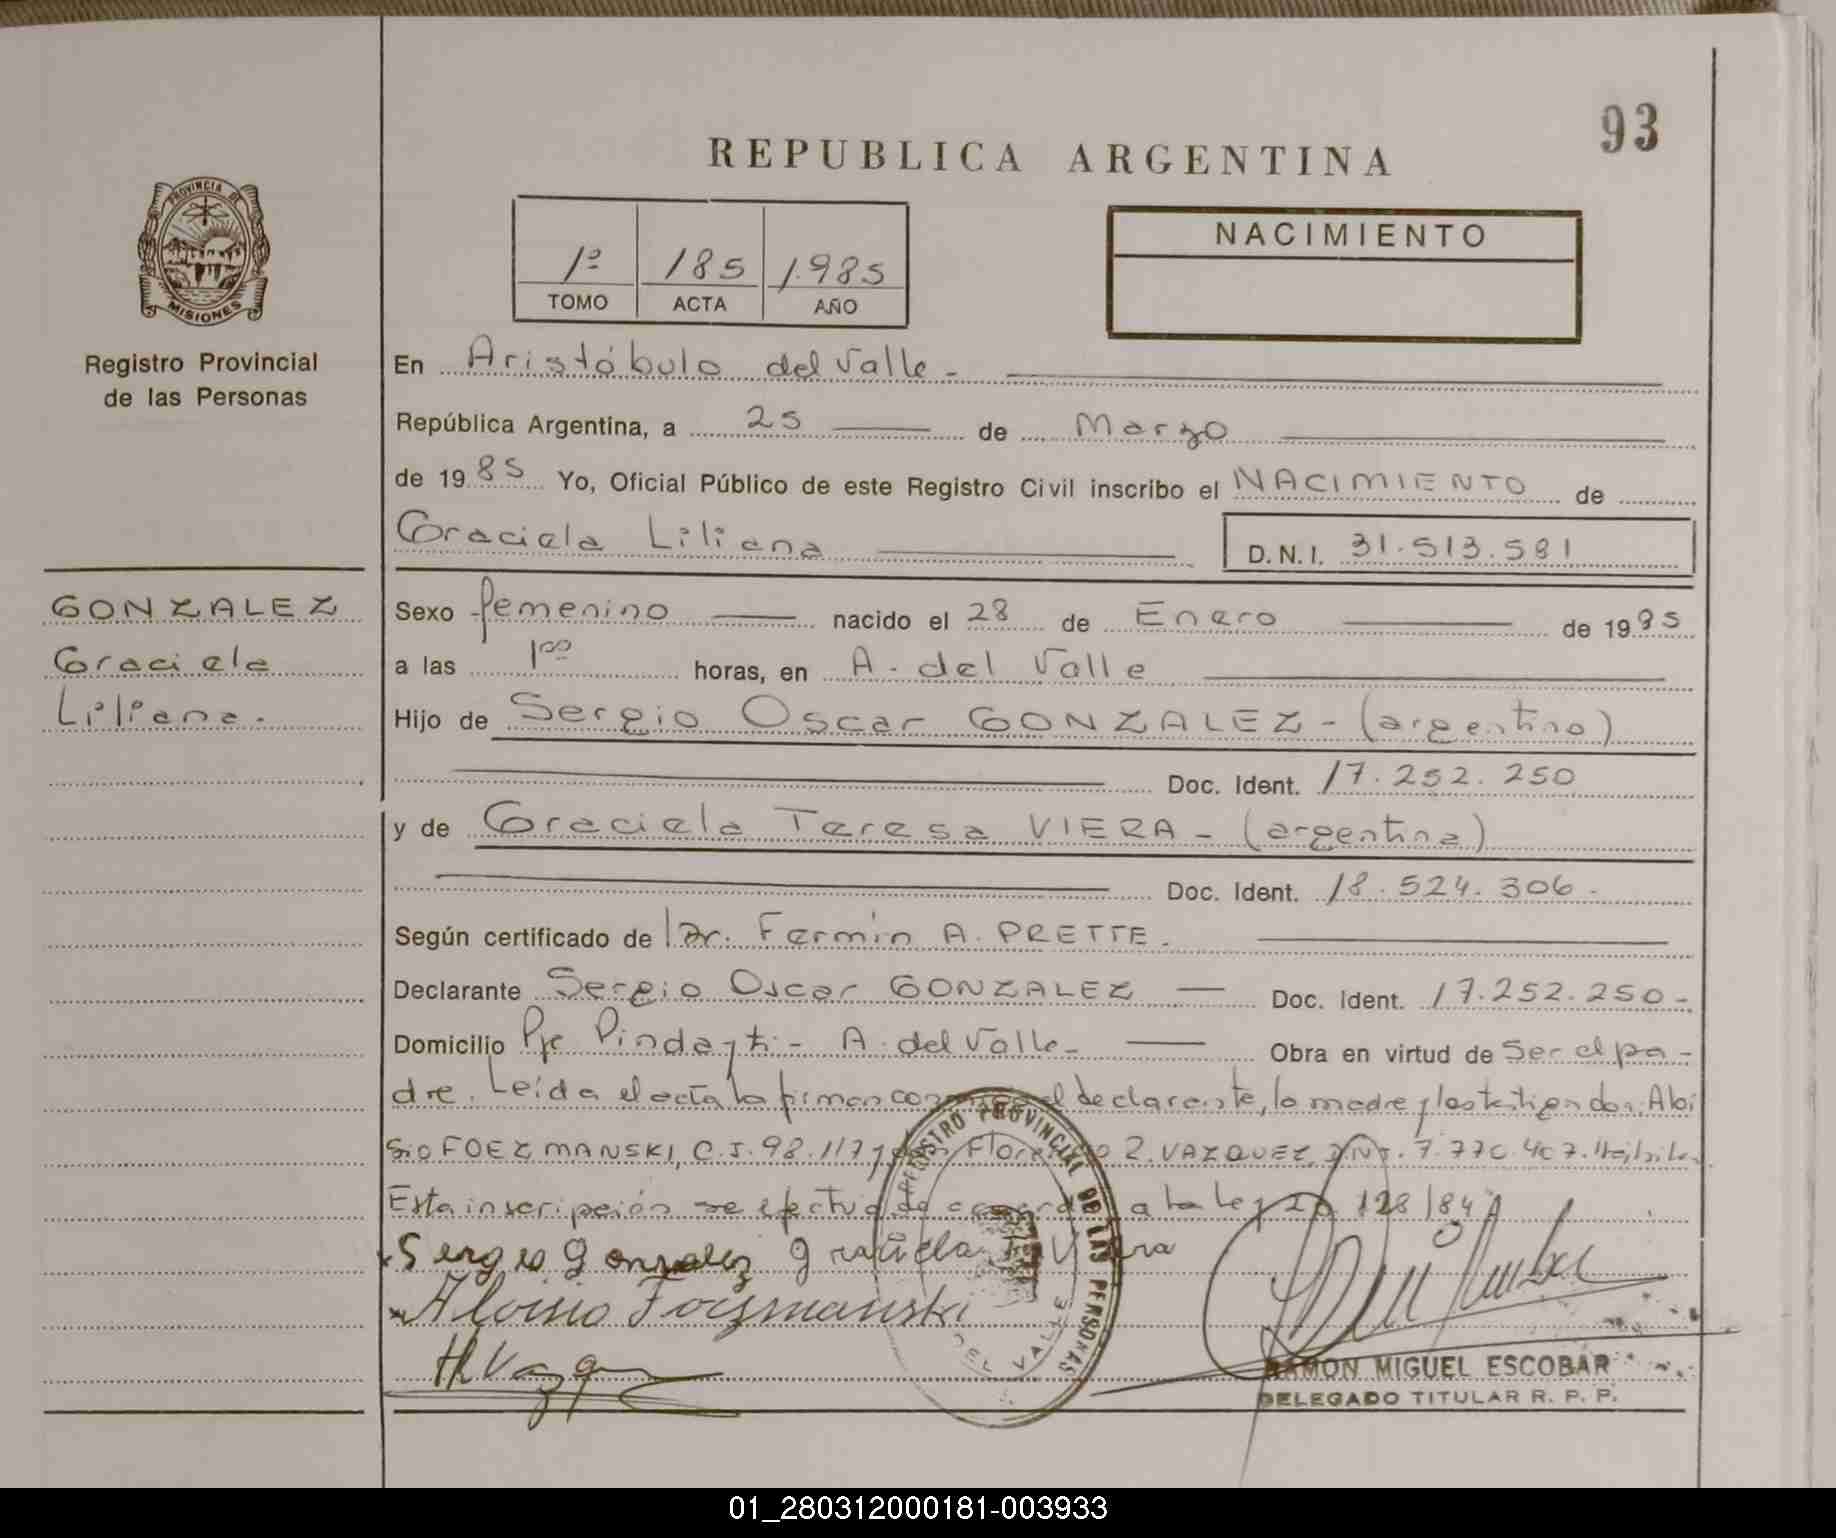 93
REPUBLICA ARGENTINA
PROVINCIA DE
MISIONES
Registro Provincial
de las Personas
1º 185 1.985
TOMO ACTA AÑO
NACIMIENTO
En Aristóbulo del Valle -
República Argentina, a 25 de Marzo
de 1985 Yo, Oficial Público de este Registro Civil inscribo el NACIMIENTO de
Graciela Liliana
D.N.I. 31.513.581
GONZALEZ
Graciela
Liliana.
Sexo femenino nacido el 28 de Enero de 1985
a las 1⁰⁰ horas, en A. del Valle
Hijo de Sergio Oscar GONZALEZ - (argentino)
Doc. Ident. 17.252.250
y de Graciela Teresa VIERA - (argentina)
Doc. Ident. 18.524.306.
Según certificado de Dr. Fermín A. PRETTE.
Declarante Sergio Oscar GONZALEZ Doc. Ident. 17.252.250-
Domicilio Pje Pindayti - A. del Valle- Obra en virtud de ser el pa-
dre. Leída el acta la firman el declarante, la madre y los testigos don. Aloi
sio FOEZMANSKI, C.I. 98.117 y VAZQUEZ, DNI. 7.770.407. Hábiles.
Esta inscripción se efectúa de a la Ley 128/84
Sergio Gonzalez Graciela T Viera
Aloisio Foezmanski
H Vazq
REGISTRO PROVINCIAL DE LAS PERSONAS
DEL VALLE
RAMON MIGUEL ESCOBAR
DELEGADO TITULAR R. P. P.
01_280312000181-003933